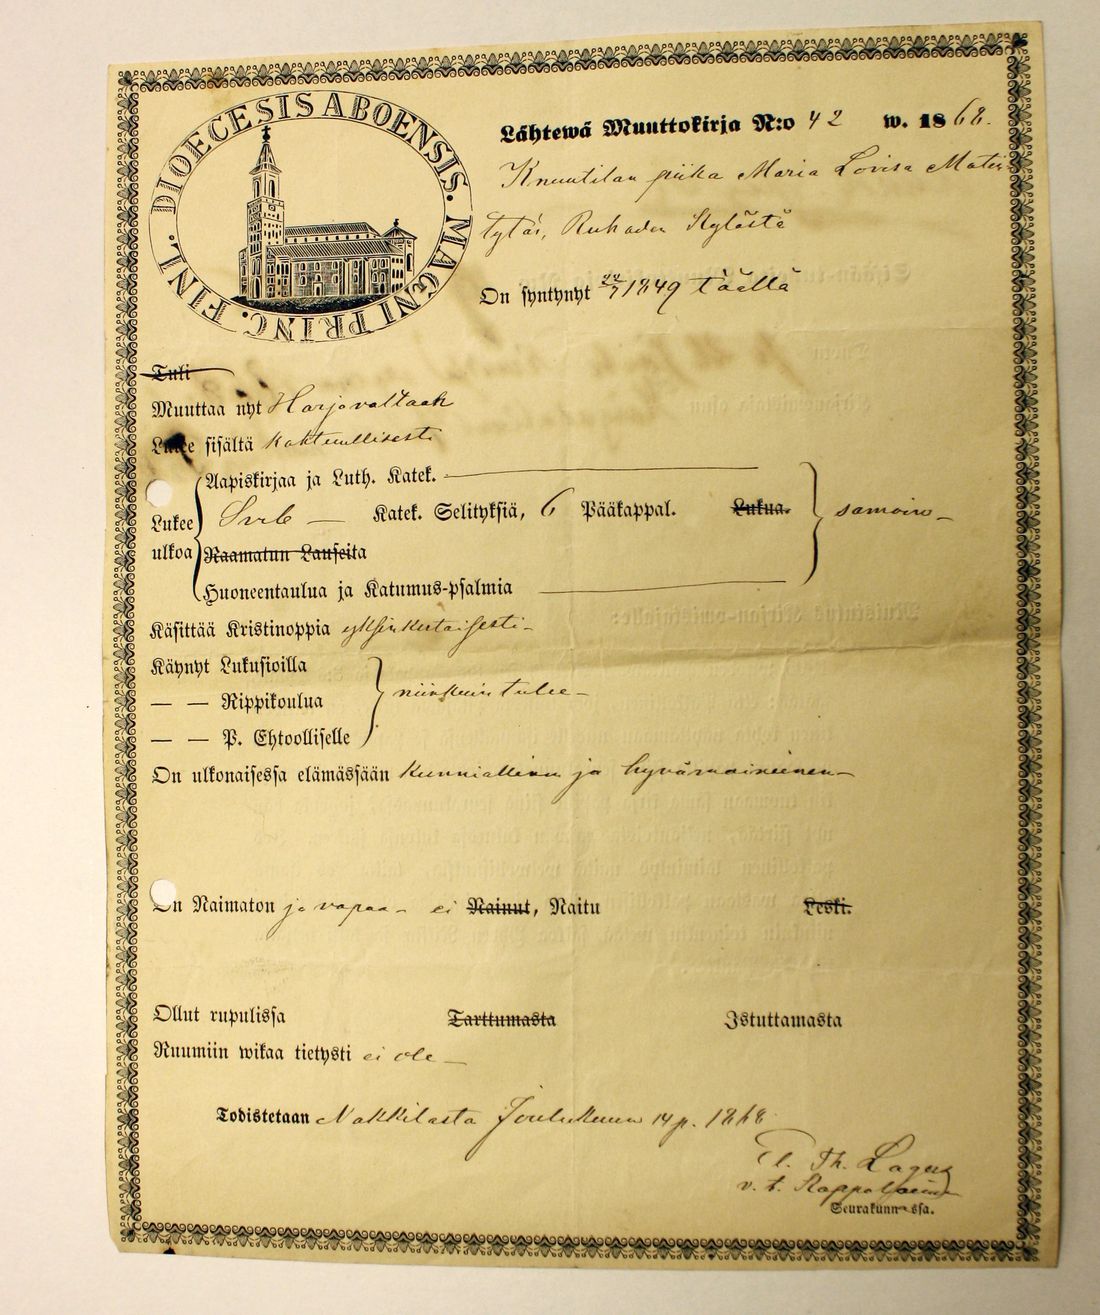 DIOECESIS ABOENSIS. MAGNI PRINC. FINL.
Lähtewä Muuttokirja N:o 42 w. 1868.
Knuutilan piika Maria Lovisa Matin
tytär, Ruhaden Kylästä
On syntynyt 1849 täällä
Tuli
Muuttaa nyt Harjavaltaan
Lukee sisältä kohtuullisesti
Aapiskirjaa ja Luth. Katek.
Lukee ulkoa Sveb — Katek. Selityksiä, 6 Pääkappal. Lukua. samoin —
Raamatun Lauseita
Huoneentaulua ja Katumus-psalmia
Käsittää Kristinoppia yksinkertaisesti —
Käynyt Lukusioilla
— — Rippikoulua niinkuin tulee —
— — P. Ehtoolliselle
On ulkonaisessa elämässään kunniallinen ja hyvämaineinen —
On Naimaton ja vapaa — ei Nainut, Naitu Leski.
Ollut rupulissa Tarttumasta Istuttamasta
Ruumiin wikaa tietysti ei ole —
Todistetaan Nakkilasta Joulukuun 14 p. 1868
Th. Lagus
v. t. Kappalainen
Seurakunnassa.